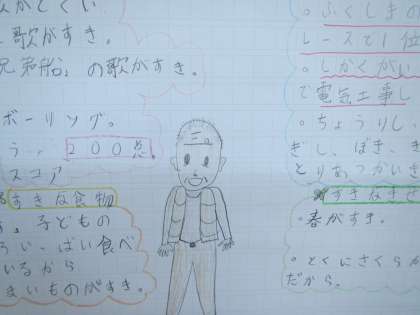 歌がすき。
兄弟船」の歌がすき。
ボーリング。
200点。
スコア
すきな食物
子どもの
ぱい食べ
いるから
まいものがすき。
三。
ふくしまの
レースで1位
しかくがい
で電気工事し
ちょうりし、
ぎし、ぼき、き
とりあつかいき
すきなきせ
春がすき。
とくにさくらが
だから。